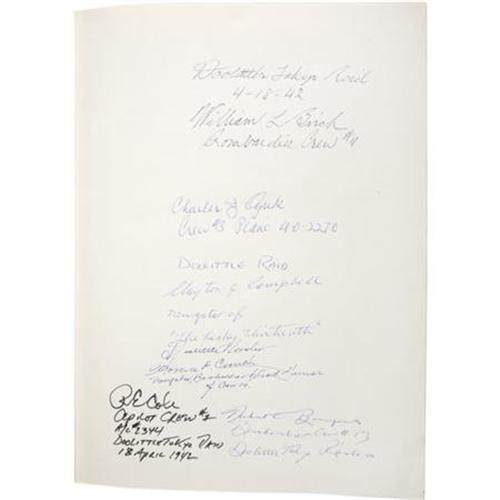 Doolittle Tokyo Raid
4-18-42
William L Birch
Bombardier Crew #11
Charles J Ozuk
Crew #3 Plane 40-2270
DOLITTLE RAID
Clayton J Campbell
navigator of
"The Lucky Thirteenth"
Horace E Crouch
Navigator, Bombardier
of Crew 10.
R E Cole
COPILOT CREW #1
A/C #2344
DOOLITTLE TOKYO RAID
18 APRIL 1942
Doolittle Tokyo Raiders